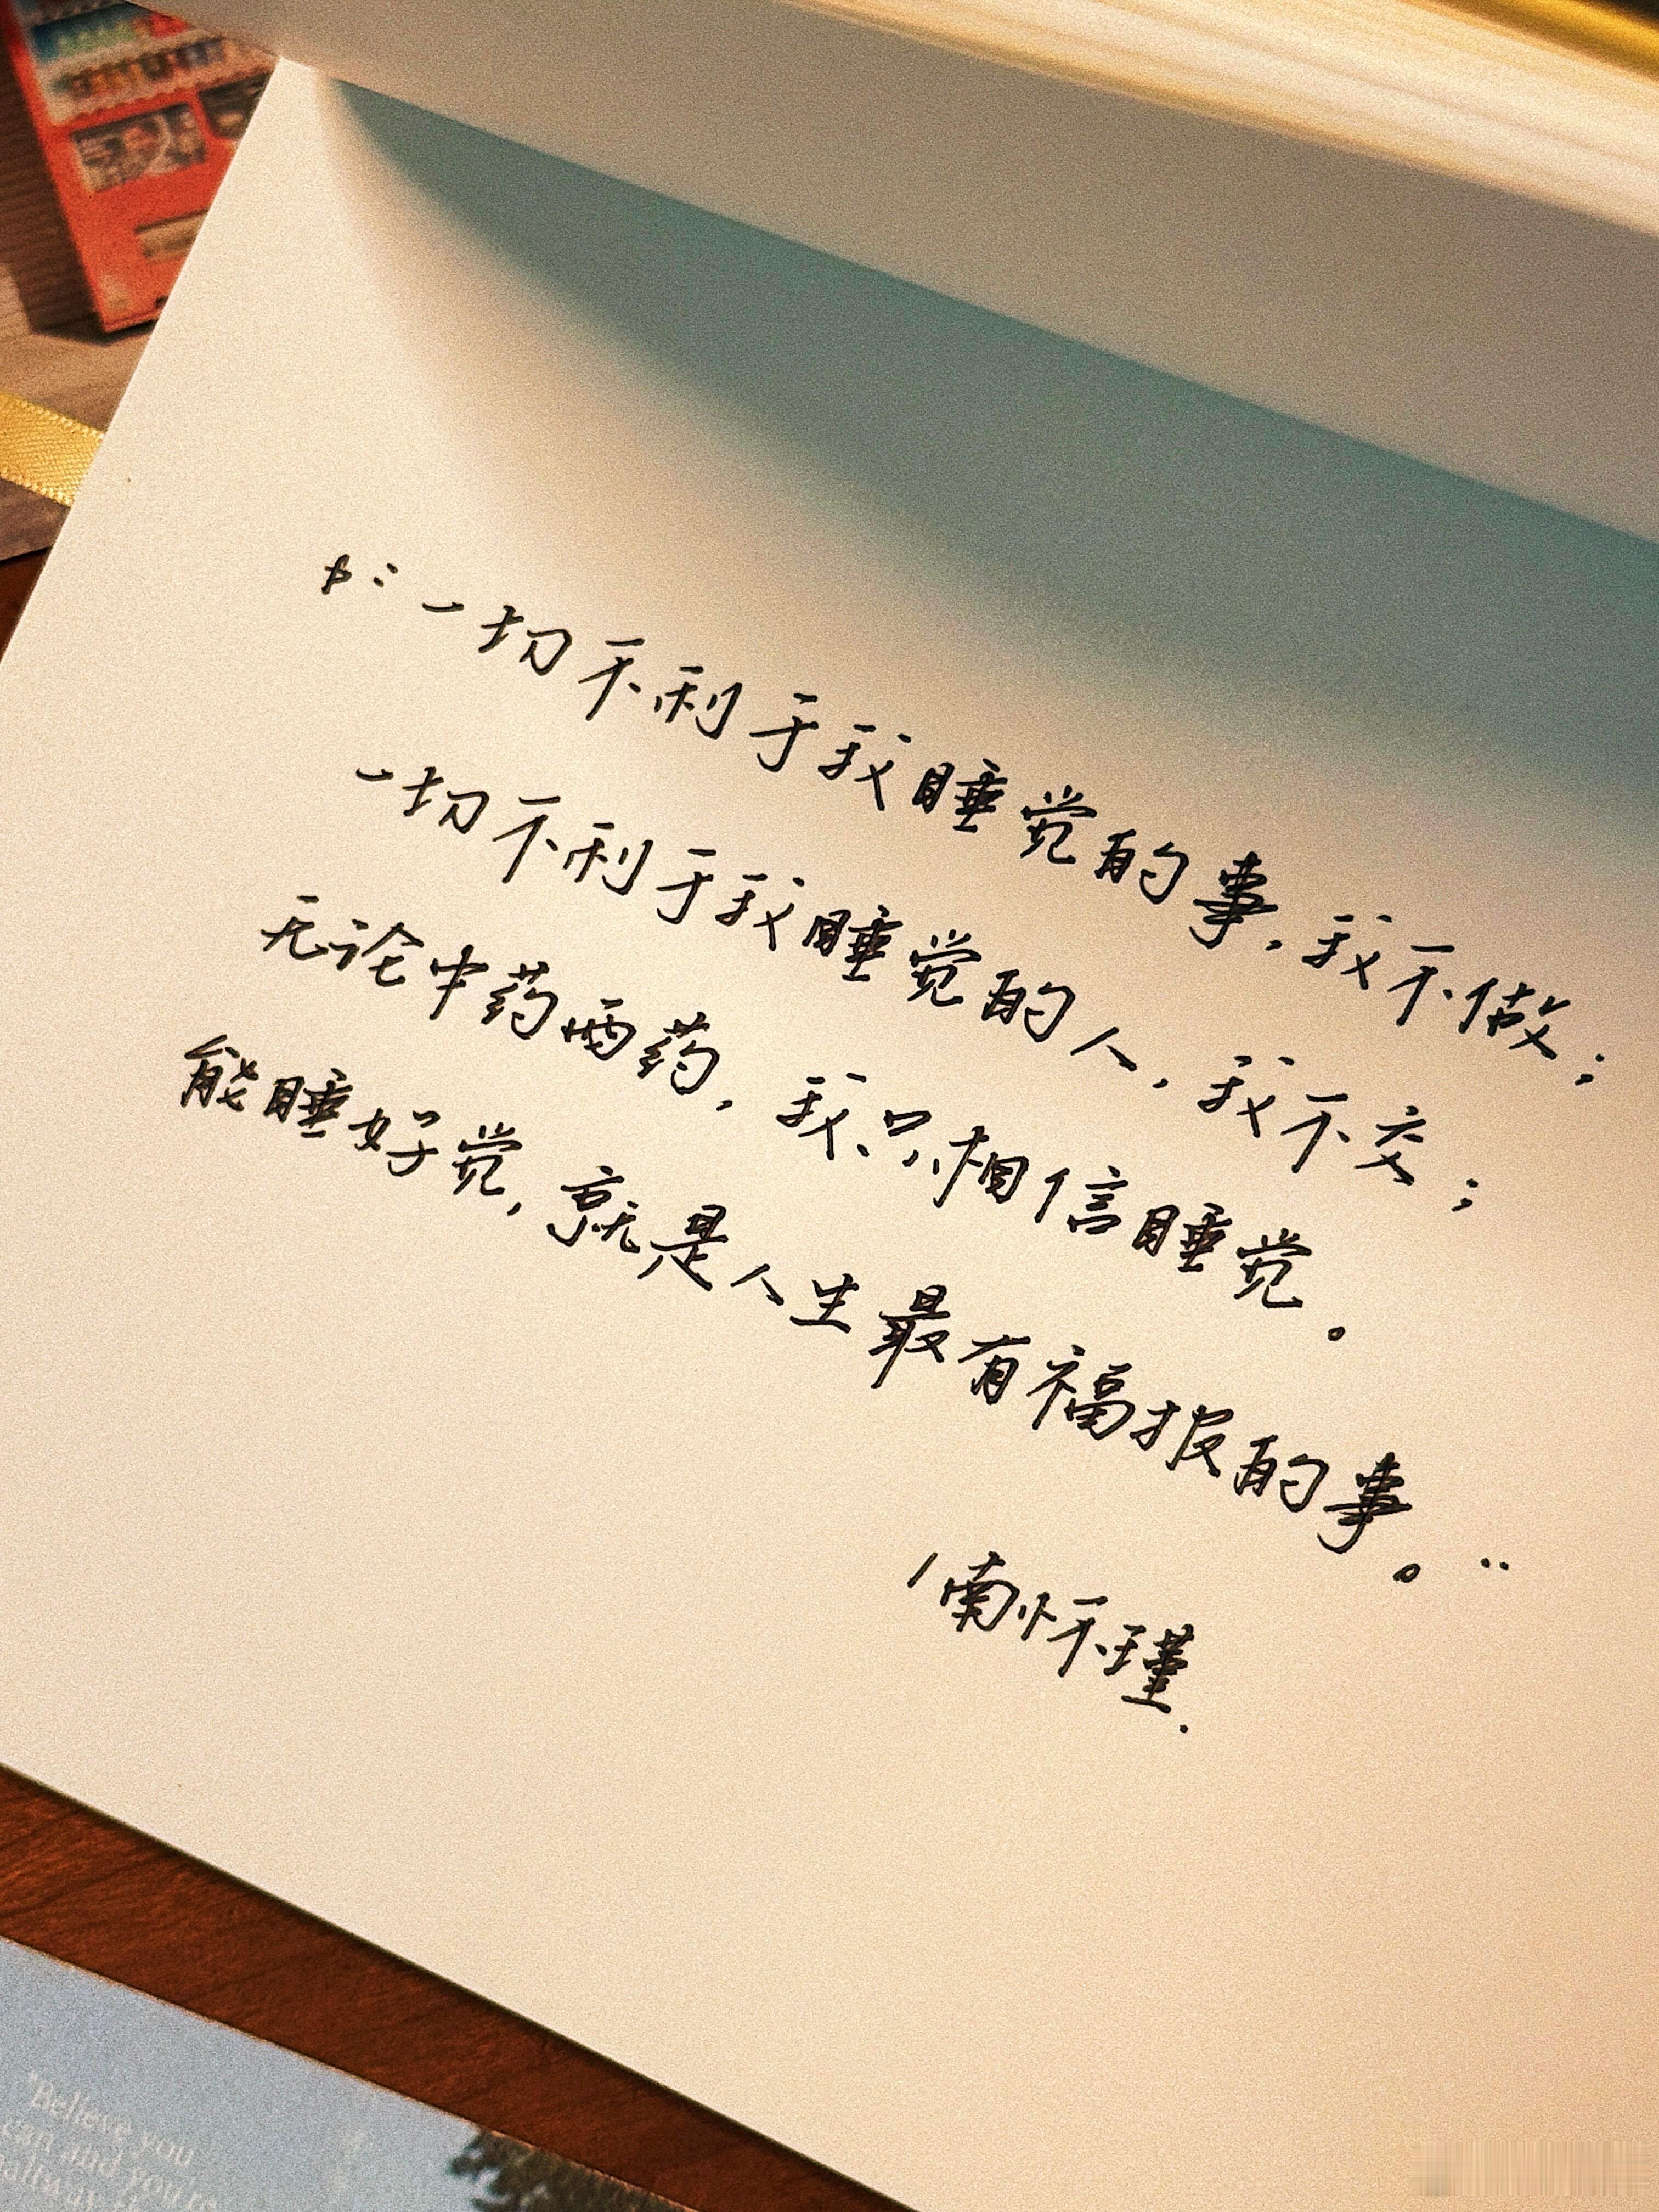 “一切不利于我睡觉的事，我不做；
一切不利于我睡觉的人，我不交；
无论中药西药，我只相信睡觉。
能睡好觉，就是人生最有福报的事。”
/南怀瑾.
"Believe you
can and you're